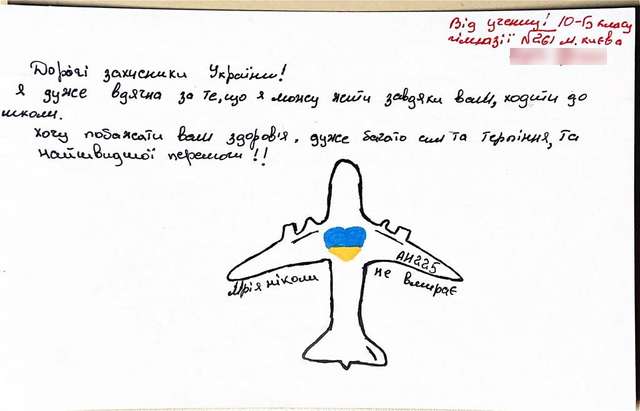 Від учениці 10-Б класу
гімназії №261 м. Києва
Дорогі захисники України!
Я дуже вдячна за те, що я можу жити завдяки вам, ходити до
школи.
Хочу побажати вам здоров'я, дуже багато сил та терпіння, та
найшвидшої перемоги!!
АН225
Мрія ніколи не вмирає